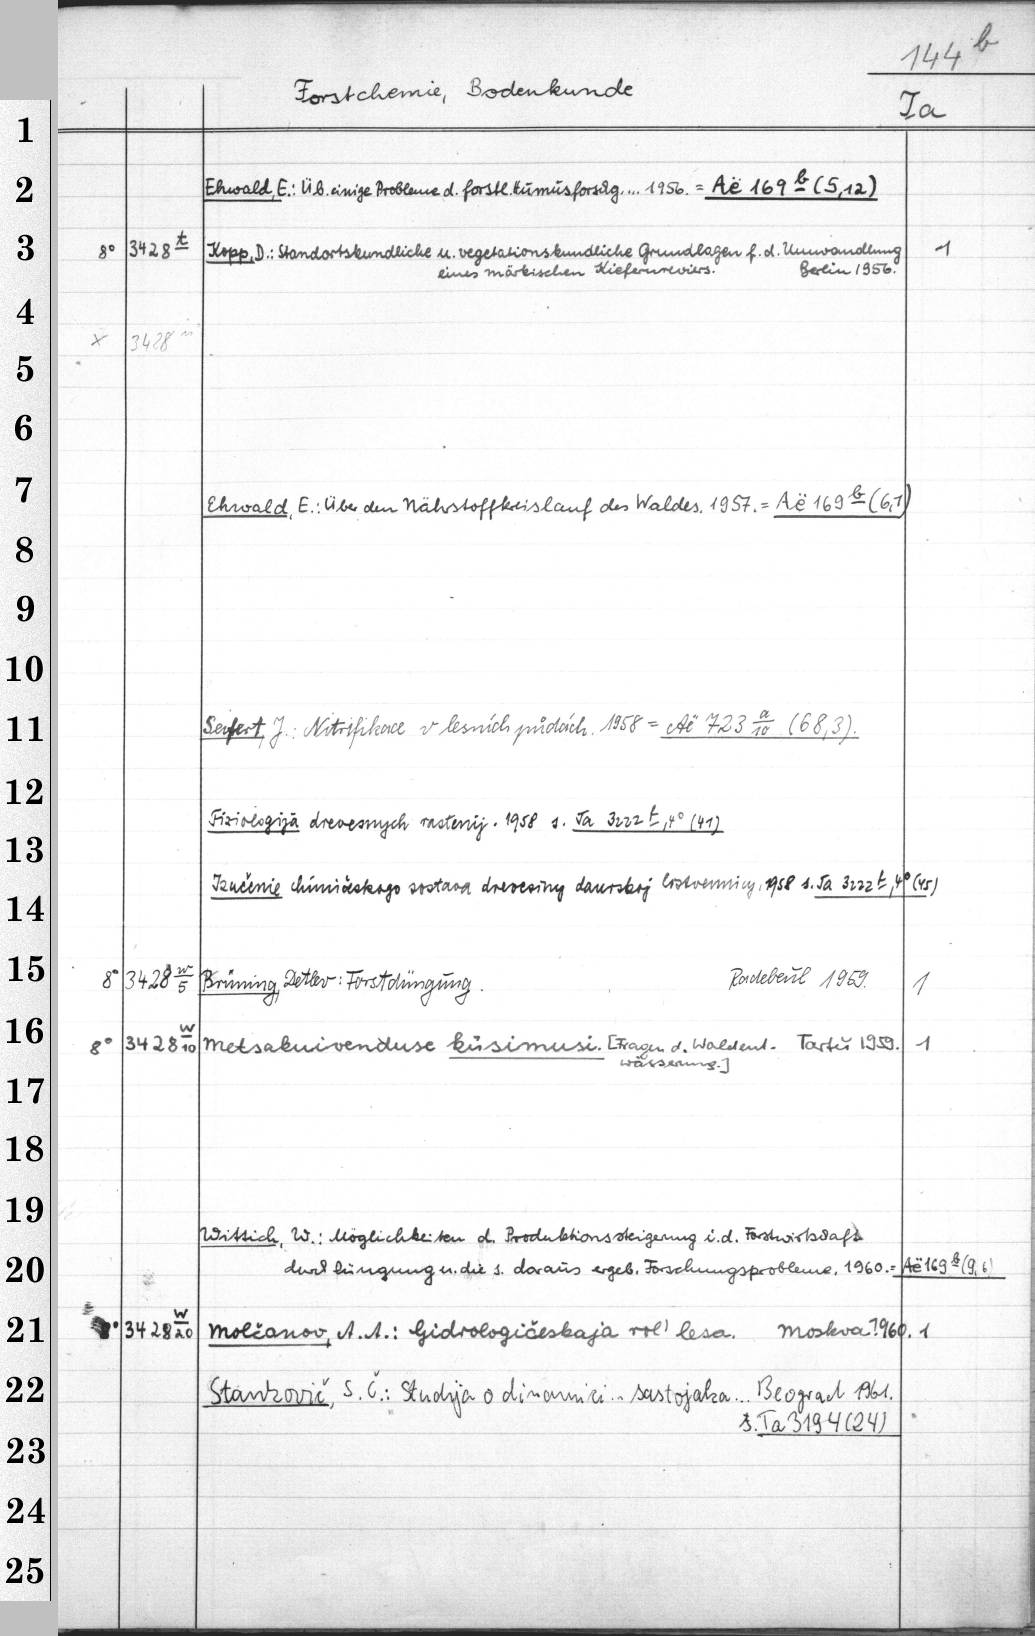 144 b
Forstchemie, Bodenkunde
Ta
1
2
Ehwald, E.: Üb. einige Probleme d. forstl. Humusforschg. ... 1956. = Aë 169 b (5,12)
3
8° 3428 t Kopp, D.: Standortskundliche u. vegetationskundliche Grundlagen f. d. Umwandlung 1
eines märkischen Kiefernreviers. Berlin 1956.
4
x 3428
5
6
7
Ehwald, E.: Über den Nährstoffkreislauf des Waldes. 1957. = Aë 169 b (6,1)
8
9
10
11
Seifert, J.: Nitrifikace v lesních půdách. 1958 = Aë 723 a/10 (68,3).
12
Fiziologijä drevesnych rastenij. 1958 s. Ta 3222 t, 4° (41)
13
Izučenie chimičeskogo sostava drevesiny daurskoj listvennicy. 1958 s. Ta 3222 t, 4° (45)
14
15
8° 3428 w/5 Brüning, Detlev: Forstdüngung. Radebeul 1959. 1
16
8° 3428 w/10 Metsakuivenduse küsimusi. [Fragen d. Waldent- Tartu 1959. 1
wässerung.]
17
18
19
Wittich, W.: Möglichkeiten d. Produktionssteigerung i. d. Forstwirtschaft
20
durch Düngung u. die s. daraus ergeb. Forschungsprobleme. 1960. = Aë 169 b (9,6)
21
8° 3428 w/20 Molčanov, A. A.: Gidrologičeskaja rol' lesa. Moskva 1960. 1
22
Stanković, S. Č.: Studija o dinamici .. sastojaka ... Beograd 1961.
s. Ta 3194 (24)
23
24
25